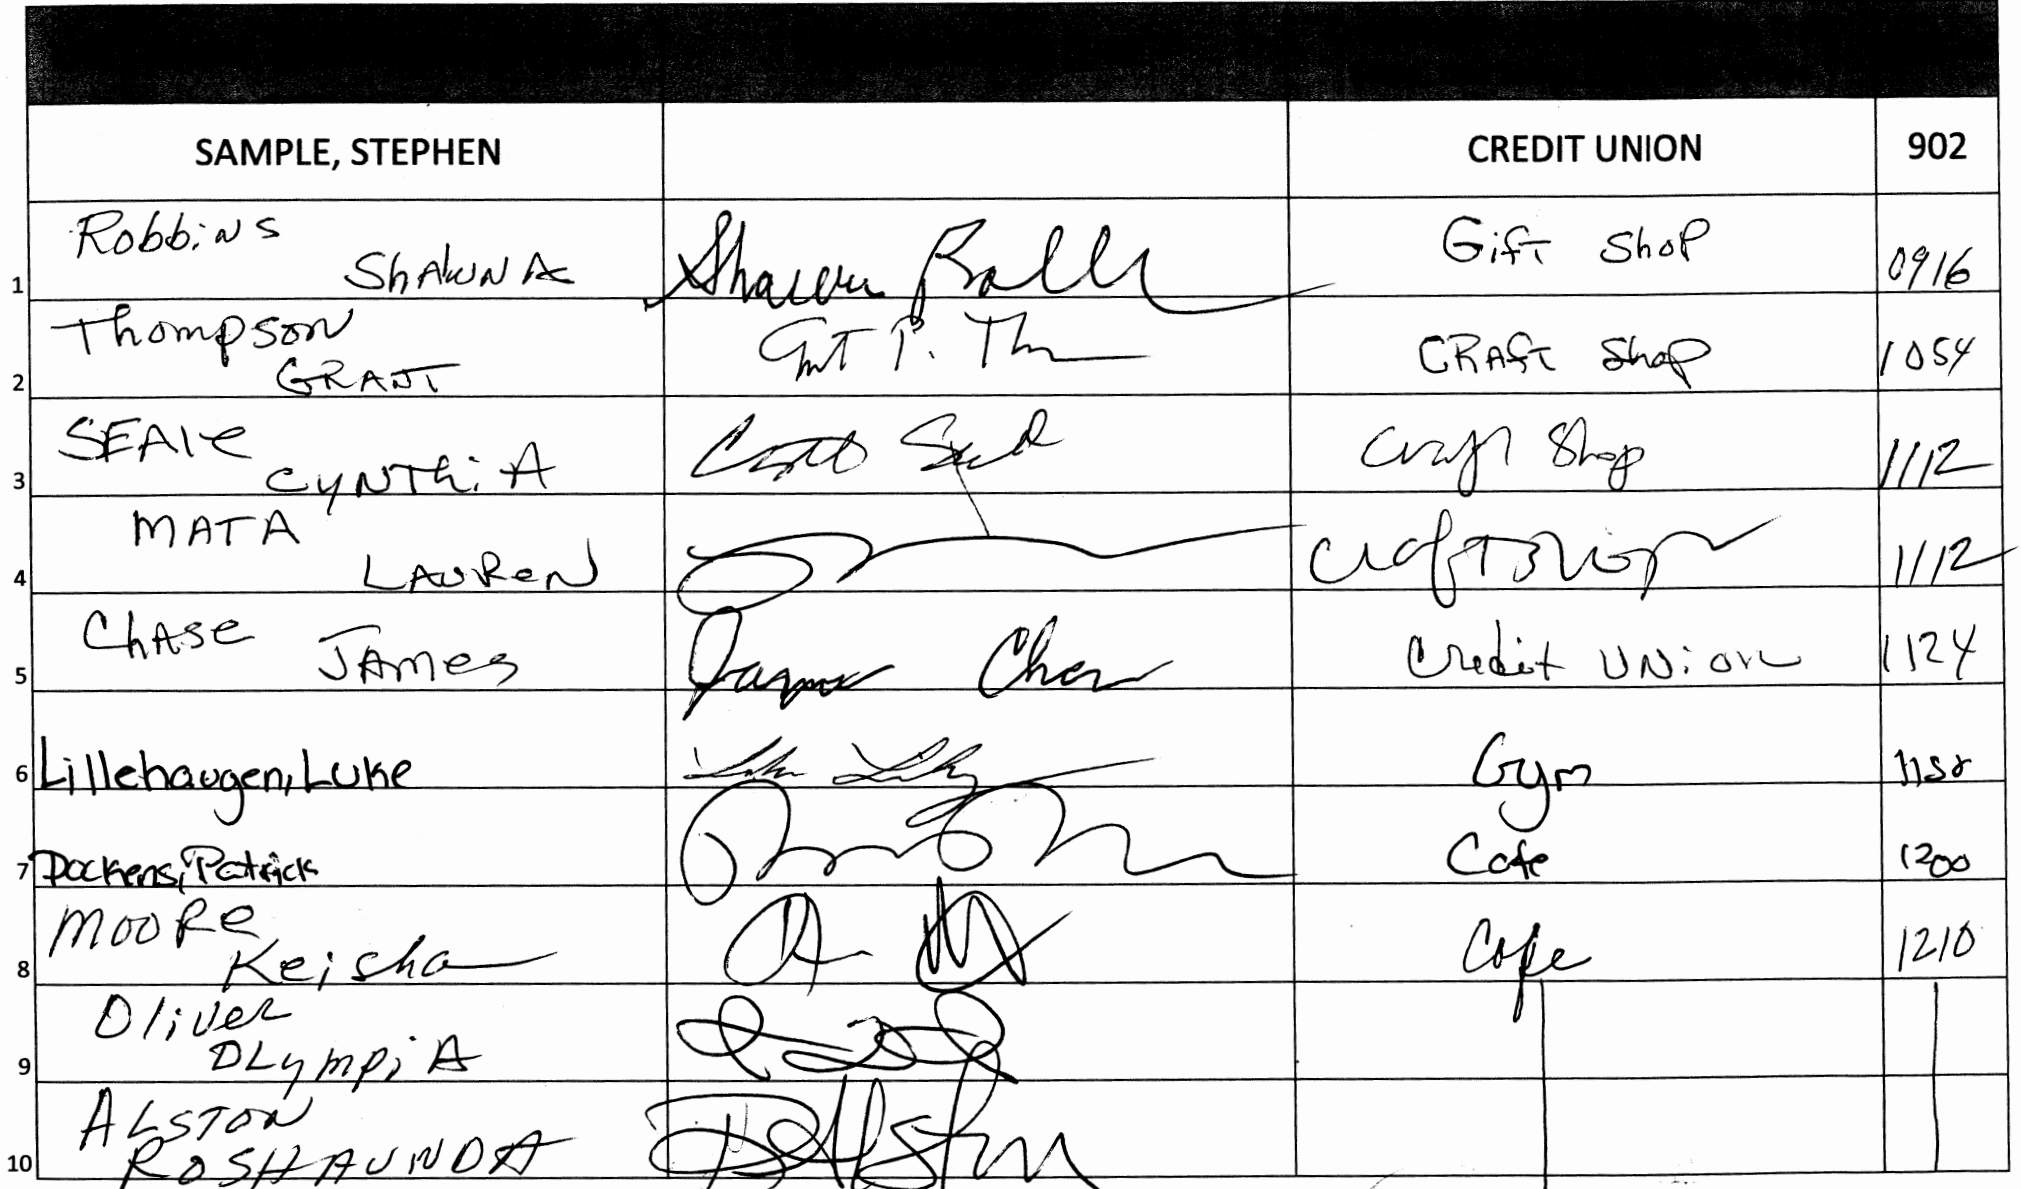 SAMPLE, STEPHEN CREDIT UNION 902
Robbins Gift Shop
1 SHAWNA Shawn 0916
Thompson
2 GRANT CRAft Shop 1054
SEAle
3 CYNThiA Craft Shop 1112
MATA
4 LAUReN Craft Shop 1112
ChASe
5 JAMes James Credit UNion 1124
6 Lillehaugen, Luke Gym
7 Dockens, Patrick Cafe 1200
MooRe
8 Keisha Cafe 1210
Oliver
9 OLympiA
ALSTON
10 ROSHAUNDA